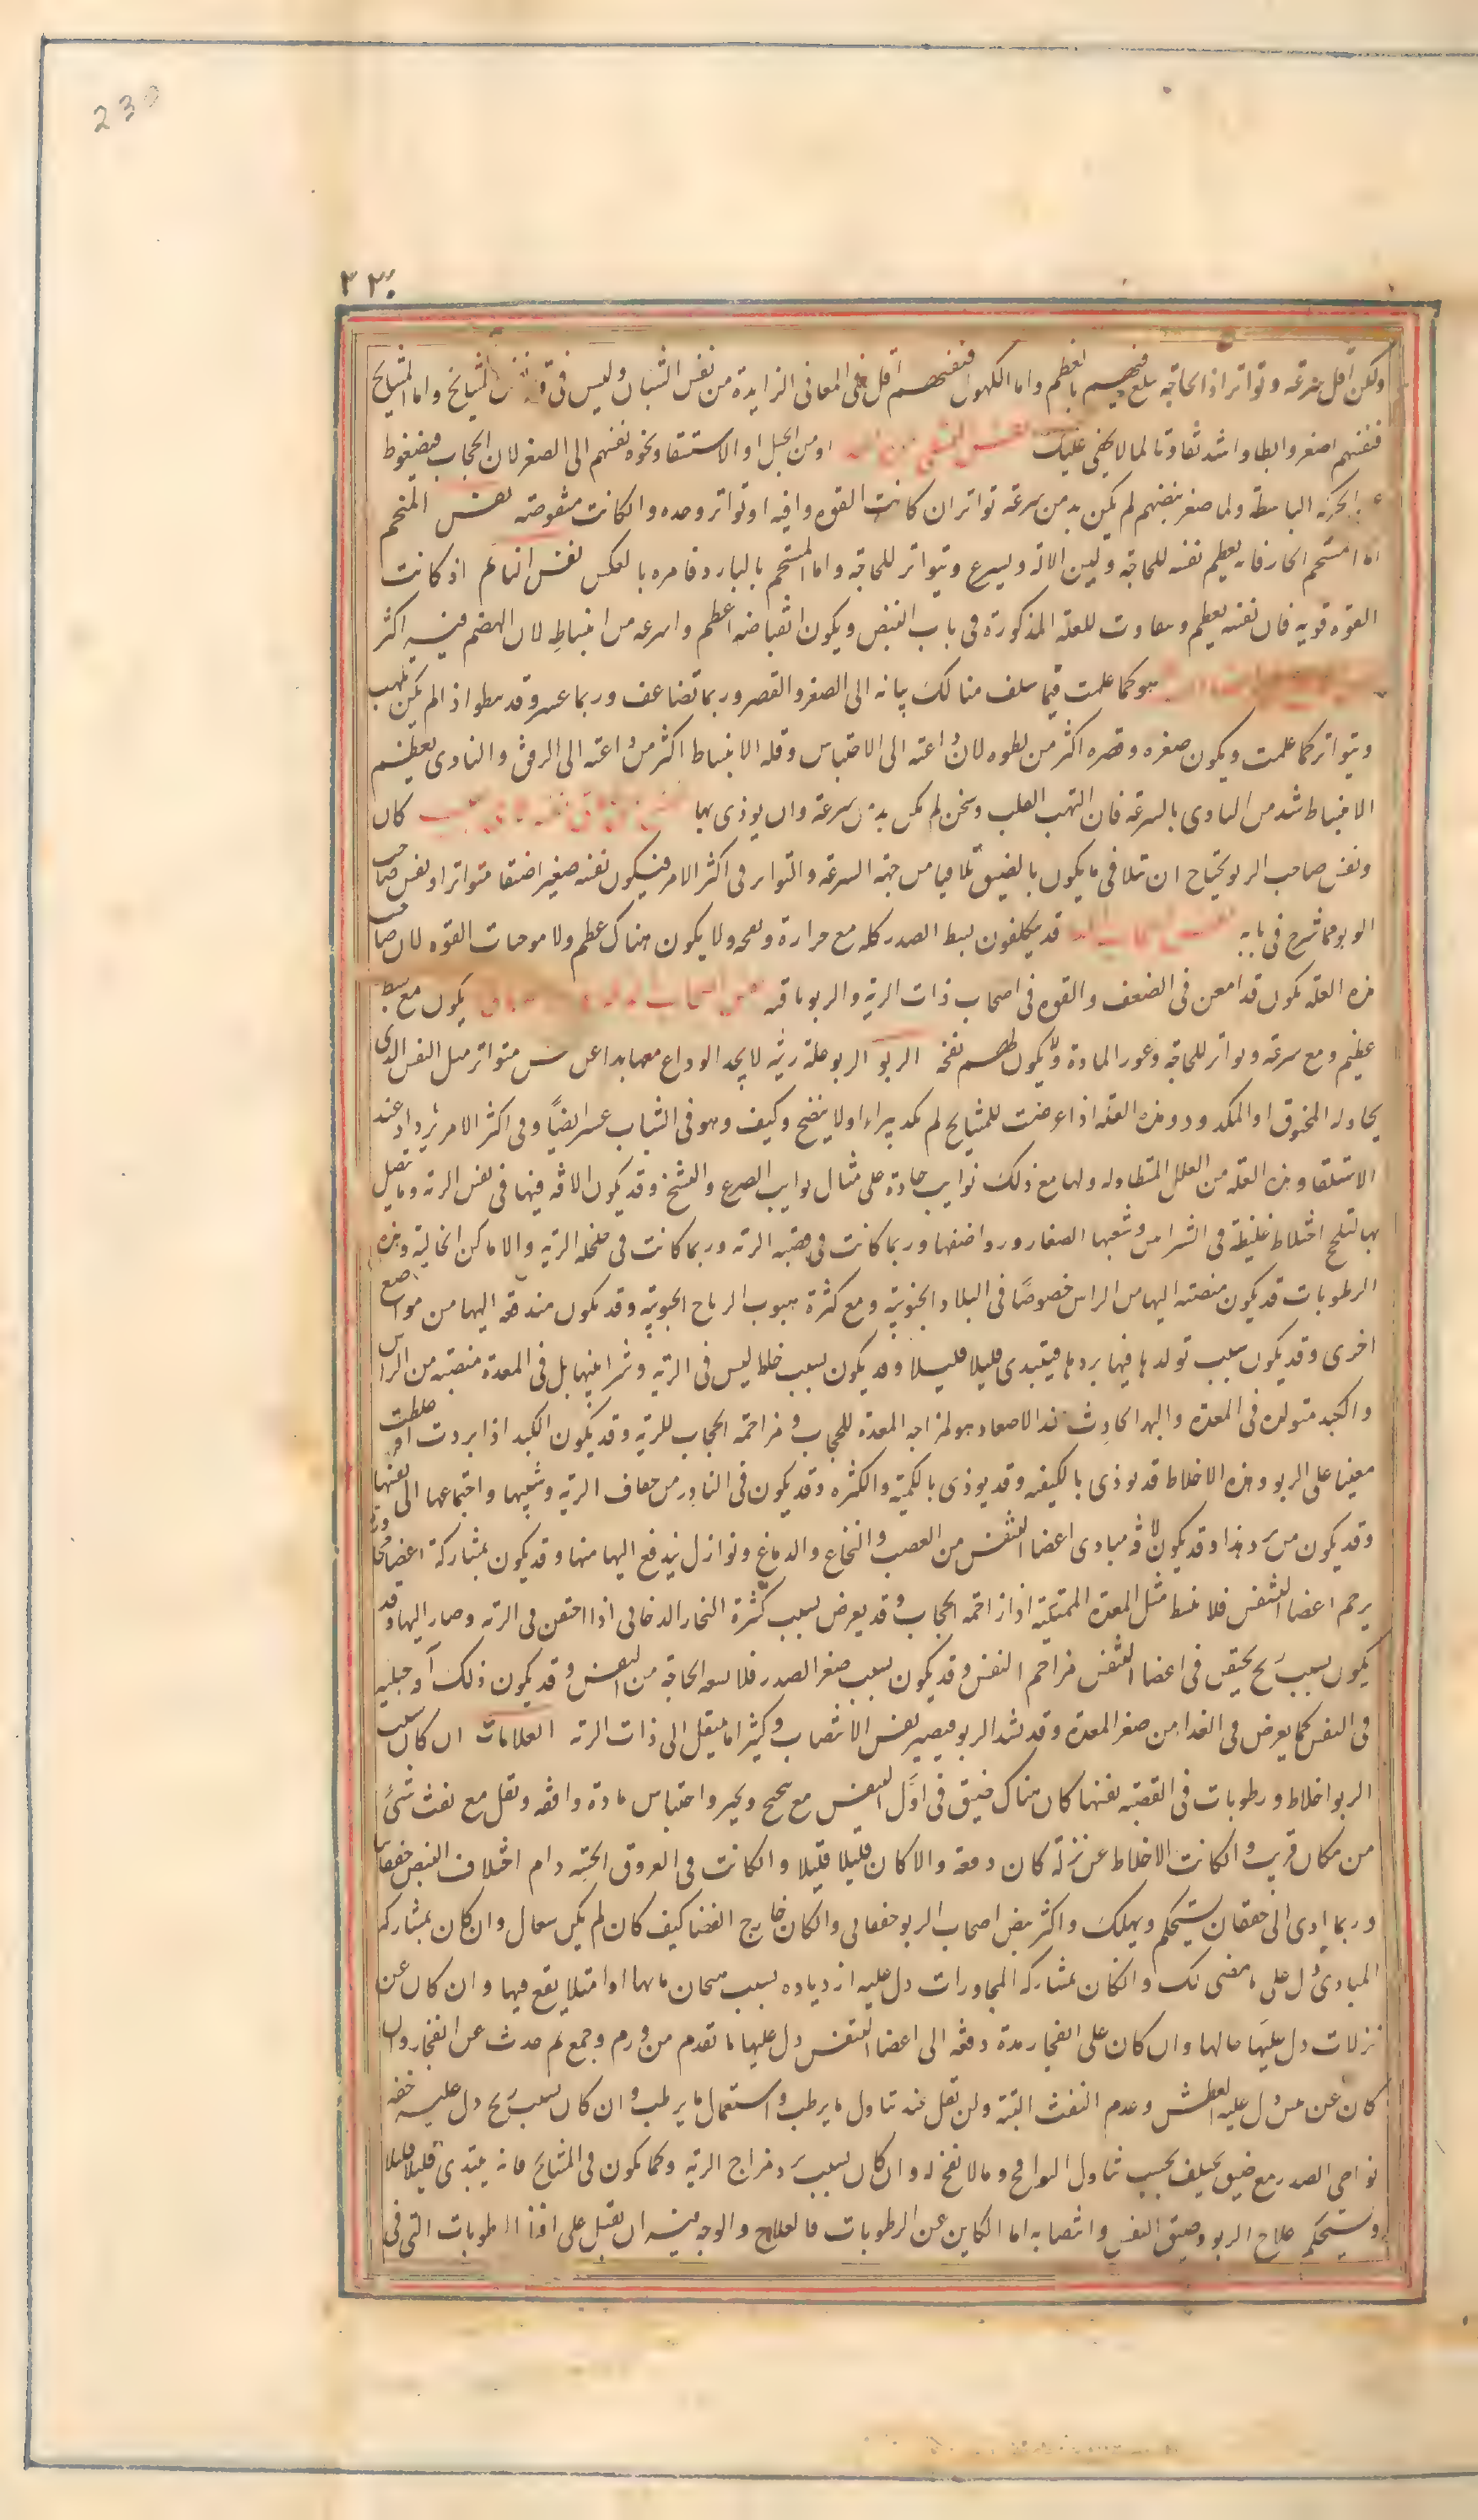 230
٣٢٠
ولكن اقل سرعة وتواترا اذ الحاجة يبلغ فيهم بالعظم واما الكهول فنفسهم اقل في المعانى الزايدة من نفس الشبان وليس في المشايخ واما المشايخ
فنفسهم اصغر وابطا واشد تفاوتا لما لا يخفى عليك او من الحبل او الاستسقا ونحوه نفسهم الى الصغر لان الحجاب مضغوط
الحركة الباسطة ولما صغر نفسهم لم يكن بد من سرعة تواتر ان كانت القوه وافيه او تواتر وحده والكانت منقوصة نفس المستحم
اما المستحم الحار فانه يعظم نفسه للحاجة ولين الالة ويسرع ويتواتر للحاجة واما المستحم بالبارد فامره بالعكس نفس النائم اذ كانت
القوه قويه فان نفسه يعظم ويتفاوت للعلة المذكورة في باب النبض ويكون انقباضه اعظم واسرع من انبساطه لان الهضم فيه اكثر
هو كما علمت فيما سلف منا لك بيانه الى الصغر والقصر وربما تضاعف وربما عسر وقد يبطوا اذ لم يكن لهيب
ويتواتر كما علمت ويكون صغره وقصره اكثر من بطوه لان داعيه الى الاحتباس وقلة الانبساط اكثر من داعيه الى الرفق والتادى بعظم
الانبساط اشد من التادى بالسرعة فان التهب القلب وسخن لم يكن بد من سرعة وان يوذى بها كان
ونفس صاحب الربو يحتاج ان يتلافى ما يكون بالضيق تلافيا من جهة السرعة والتواتر في اكثر الامر فيكون نفسه صغيرا ضيقا متواترا ونفس صاحب
الربو مما شرح في بابه قد يتكلفون بسط الصدر كله مع حرارة ونفخة ولا يكون هناك عظم ولا موجبات القوه لان صاحب
هذه العلة يكون قد امعن في الضعف والقوه في اصحاب ذات الرية والربو باقية يكون مع بسط
عظيم ومع سرعة وتواتر للحاجة وغور المادة ولا يكون لهم نفخة الربو الربو علة ريية لا يجد الوداع معها بدا عن نفس متواتر مثل النفس الذى
يحاوله المخنوق او المكدود وهذه العلة اذا عرضت للمشايخ لم يكد يبراء او لا ينضج وكيف وهو في الشباب عسر ايضاً وفى اكثر الامر يزداد عند
الاستلقا وهذه العلة من العلل المتطاولة ولها مع ذلك نوايب حادة على مثال نوايب الصرع والتشنج وقد يكون الافة فيها في نفس الرية وما يتصل
بها لتلحج اخلاط غليظة في الشرايين وشعبها الصغار ورواضعها وربما كانت في قصبة الرية وربما كانت في خلخلة الرية والاماكن الخالية وهذه
الرطوبات قد يكون منصبة اليها من الراس خصوصًا في البلاد الجنوبية ومع كثرة هبوب الرياح الجنوبية وقد يكون مندفعة اليها من مواضع
اخرى وقد يكون بسبب تولدها فيها بردها فيبتدى قليلا قليلا وقد يكون بسبب خلط ليس في الرية وشرايينها بل في المعدة منصبة من الراس
والكبد متولدة في المعدة والبهر الحادث عند الاصعاد هو لمزاحمة المعدة للحجاب ومزاحمة الحجاب للرية وقد يكون الكبد اذا بردت او غلظت
معينا على الربو وهذه الاخلاط قد يوذى بالكيفيه وقد يوذى بالكمية والكثرة وقد يكون في النادر من جفاف الرية ويبسها واجتماعها الى نفسها
وقد يكون من برد هذا وقد يكون لافة مبادى اعضا التنفس من العصب والنخاع والدماغ ونوازل يندفع اليها منها وقد يكون بمشاركة اعضا مجاورة
يزحم اعضا التنفس فلا ينبسط مثل المعدة الممتلية اذا زاحمة الحجاب وقد يعرض بسبب كثرة البخار الدخانى اذا احتقن في الرية وصار اليها وقد
يكون بسبب ريح يحتقن في اعضا التنفس مزاحم النفس وقد يكون بسبب صغر الصدر فلا يسع الحاجة من النفس وقد يكون ذلك آفة جبلية
في النفس كما يعرض في الغدا من صغر المعدة وقد يشتد الربو فيصير نفس الانتصاب وكثيرا ما ينتقل الى ذات الرية العلامات ان كان سبب
الربو اخلاط ورطوبات في القصبة نفسها كان هناك ضيق في اوّل التنفس مع تنحنح ونخير واحتباس مادة واقفه وثقل مع نفث شئ
من مكان قريب والكانت الاخلاط عن نزلة كان دفعة والا كان قليلا قليلا والكانت في العروق الخشنة دام اختلاف النبض خفقانيا
وربما ادى الى خفقان يستحكم ويهلك واكثر نبض اصحاب الربو خفقانى والكان خارج الفضا كيف كان لم يكن سعال وان كان بمشاركة
المبادى دل على ما مضى لك والكان بمشاركة المجاورات دل عليه ازدياده بسبب هيجان مابها او امتلا يقع فيها وان كان عن
نزلات دل عليها حالها وان كان على انفجار مدة دفعة الى اعضا التنفس دل عليها ما تقدم من ورم وجمع لم حدث عن انفجار وان
كان عن يبس دل عليه العطش وعدم النفث البتة ولن يقل عند تناول ما يرطب واستعمال ما يرطب وان كان بسبب ريح دل عليه خفه
نواحى الصدر مع ضيق يختلف بحسب تناول النوافخ وما لا نفخ له وان كان بسبب برد مزاج الرية وكما يكون في المشايخ فانه يبتدى قليلا قليلا
ويستحكم علاج الربو وضيق النفس وانتصابه اما الكاين عن الرطوبات فالعلاج والوجه فيه ان يقبل على افنا الرطوبات التى في